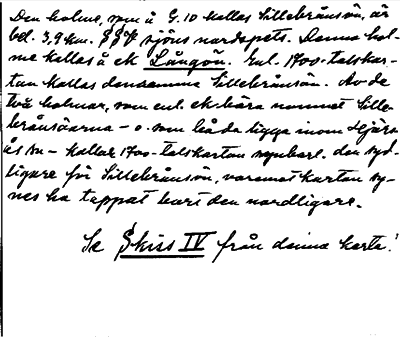 Den holme, som å G. 10 kallas Sillebrånsön, är
bel. 3,9 km. SSV sjöns nordspets. Denna hol-
me kallas å ek Långön. Enl. 1700-talskar-
tan kallas densamma Sillebrånsön. Av de
två holmar, som enl. ek bära namnet Sille-
brånsöarna - o. som båda ligga inom Hjärs-
ås sn - kallar 1700-talskartan uppenbarl. den syd-
ligare för Sillebrånsön, varemot kartan sy-
nes ha tappat bort den nordligare.
Se Skiss IV från denna karta!